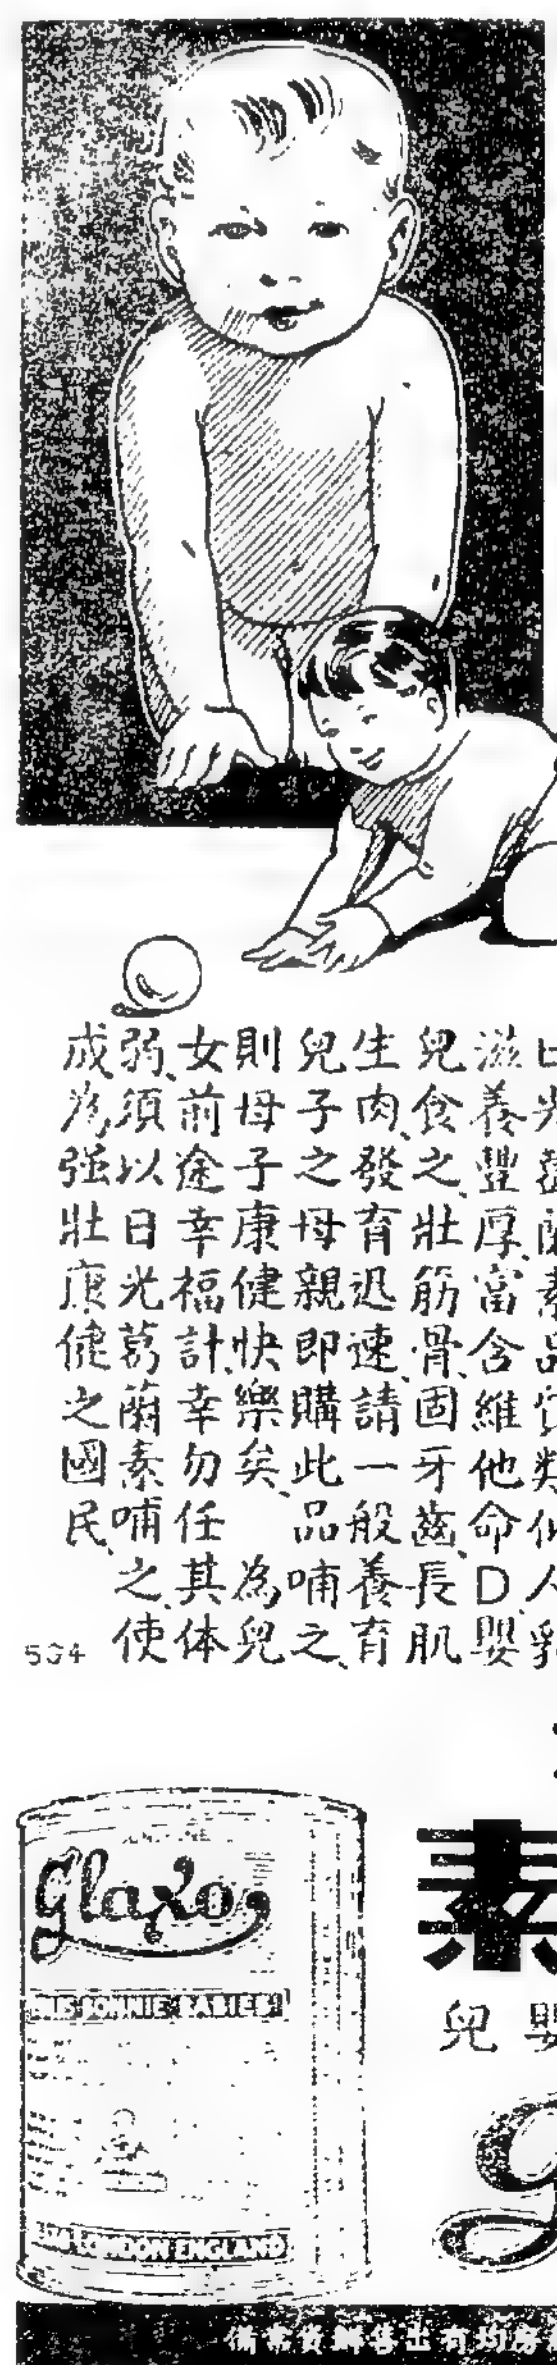 滋養豐厚、富含維他命D、嬰
兒食之、壯筋骨、固牙齒、長肌
生肉、發育迅速、請一般養育
兒子之母親即購此品哺之、
則母子康健快樂矣、 為兒
女前途幸福計、幸勿任其体
弱、須以日光葛蘭素哺之、使
成為强壯康健之國民、
504
素
兒
Glaxo
BONNIE BABIES
LONDON ENGLAND
房均有出售